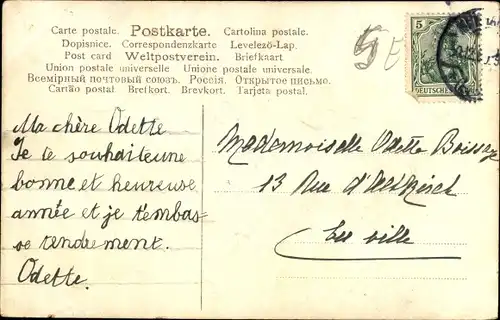 Carte postale. Postkarte. Cartolina postale.
Dopisnice. Correspondenzkarte Levelező-Lap.
Post card Weltpostverein. Briefkaart
Union postale universelle Unione postale universale.
Всемірный почтовый союзъ. Россія. Открытое письмо.
Cartão postal Bretkort. Brevkort. Tarjeta postal.
5
DEUTSCHES
Ma chère Odette
Je te souhaite une
bonne et heureuse
année et je t'embas-
se tendrement.
Odette.
Mademoiselle Odette
13 Rue d'Altkirch
En ville